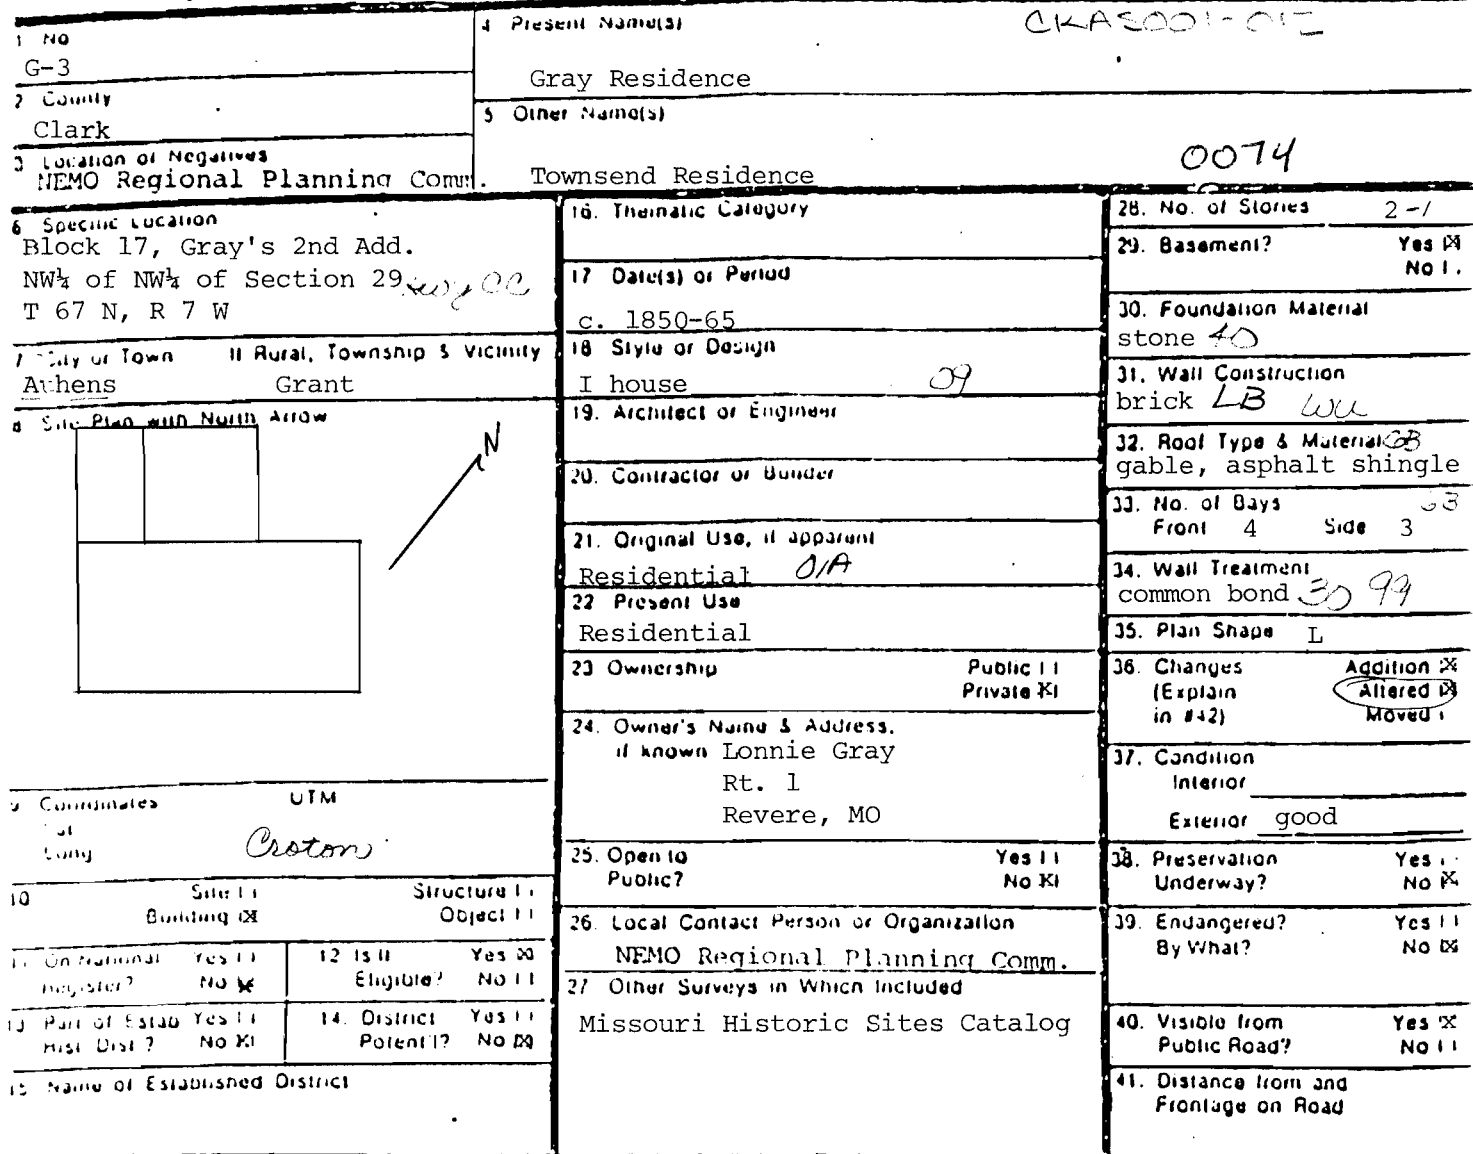 1 No
G-3
2 County
Clark
3 Location of Negatives
NEMO Regional Planning Comm.
4 Present Name(s)
Gray Residence
5 Other Name(s)
Townsend Residence
0074
6 Specific Location
Block 17, Gray's 2nd Add.
NW¼ of NW¼ of Section 29
T 67 N, R 7 W
7 City or Town If Rural, Township & Vicinity
Athens Grant
8 Site Plan with North Arrow
N
9 Coordinates UTM
Lat
Long
Croton
10 Site
Structure
Building X
Object
11 On National Register? Yes No X
12 Is it Eligible? Yes X No
13 Part of Estab Hist Dist? Yes No X
14. District Potent'l? Yes No X
15 Name of Established District
16. Thematic Category
17 Date(s) or Period
c. 1850-65
18 Style or Design
I house 09
19. Architect or Engineer
20. Contractor or Builder
21. Original Use, if apparent
Residential 01A
22 Present Use
Residential
23 Ownership Public
Private X
24. Owner's Name & Address,
if known Lonnie Gray
Rt. 1
Revere, MO
25. Open to Yes
Public? No X
26. Local Contact Person or Organization
NEMO Regional Planning Comm.
27 Other Surveys in Which Included
Missouri Historic Sites Catalog
28. No. of Stories 2-1
29. Basement? Yes X
No
30. Foundation Material
stone 40
31. Wall Construction
brick LB WU
32. Roof Type & Material GB
gable, asphalt shingle
33. No. of Bays
Front 4 Side 3
34. Wall Treatment
common bond 30 99
35. Plan Shape L
36. Changes Addition X
(Explain Altered X
in #42) Moved
37. Condition
Interior
Exterior good
38. Preservation Yes
Underway? No X
39. Endangered? Yes
By What? No X
40. Visible from Yes X
Public Road? No
41. Distance from and
Frontage on Road